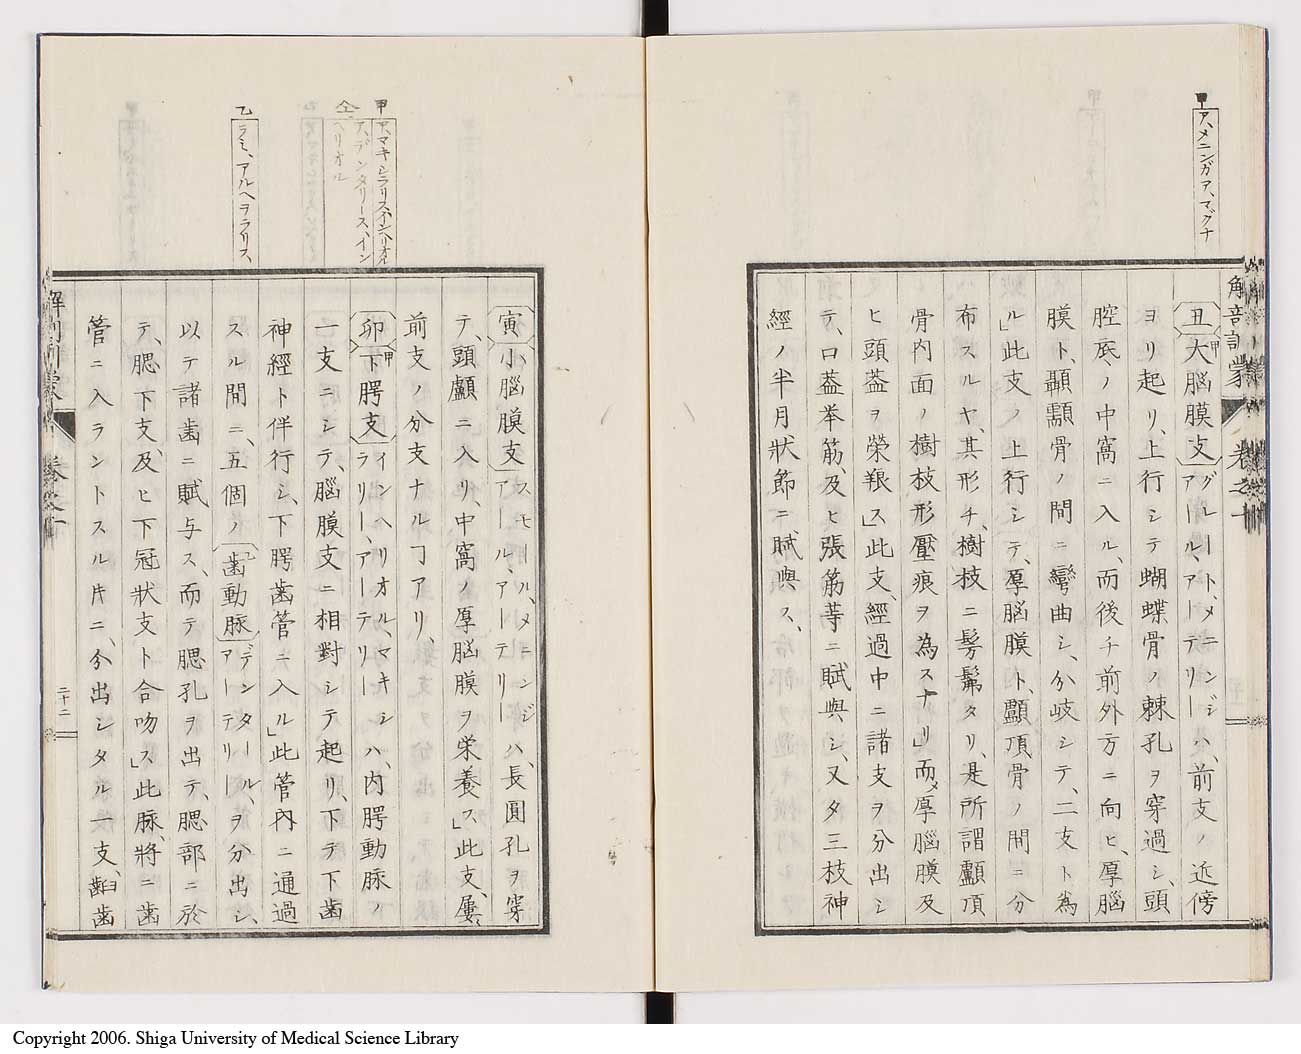 甲 ア、メニンガア、マグナ
解剖訓蒙 卷之十
丑 甲大脳膜支 グレート、メニンジアール、アーテリー ハ、前支ノ近傍
ヨリ起リ、上行シテ蝴蝶骨ノ棘孔ヲ穿過シ、頭
腔底ノ中窩ニ入ル、而後チ前外方ニ向ヒ、厚脳
膜ト、顳顬骨ノ間ニ彎曲シ、分岐シテ、二支ト為
ル」此支ノ上行シテ、厚脳膜ト、顱頂骨ノ間ニ分
布スルヤ、其形チ、樹枝ニ髣髴タリ、是所謂顱頂
骨内面ノ樹枝形壓痕ヲ為スナリ」而〆厚脳膜及
ヒ頭蓋ヲ榮養ス」此支、經過中ニ諸支ヲ分出シ
テ、口蓋挙筋、及ヒ張筋等ニ賦與シ、又タ三枝神
經ノ半月状節ニ賦與ス、
甲 ア、マキシラリス、インヘリオル
仝 ア、デンタリース、インヘリオル
乙 ラミ、アルヘヲラリス
寅 小脳膜支 スモール、メニンジアール、アーテリー ハ、長圓孔ヲ穿
テ、頭顱ニ入リ、中窩ノ厚脳膜ヲ栄養ス」此支、屢
前支ノ分支ナルヿアリ、
卯 甲下腭支 インヘリオル、マキシラリー、アーテリー ハ、内腭動脉ノ
一支ニシテ、脳膜支ニ相對シテ起リ、下テ下歯
神經ト伴行シ、下腭歯管ニ入ル」此管内ニ通過
スル間ニ、五個ノ 乙歯動脉 デンタール、アーテリー ヲ分出シ、
以テ諸歯ニ賦与ス、而テ腮孔ヲ出テ、腮部ニ於
テ、腮下支、及ヒ下冠状支ト合吻ス」此脉、將ニ歯
管ニ入ラントスル片ニ、分出シタル一支、齨歯
解剖訓蒙 卷之十 二十二
Copyright 2006. Shiga University of Medical Science Library